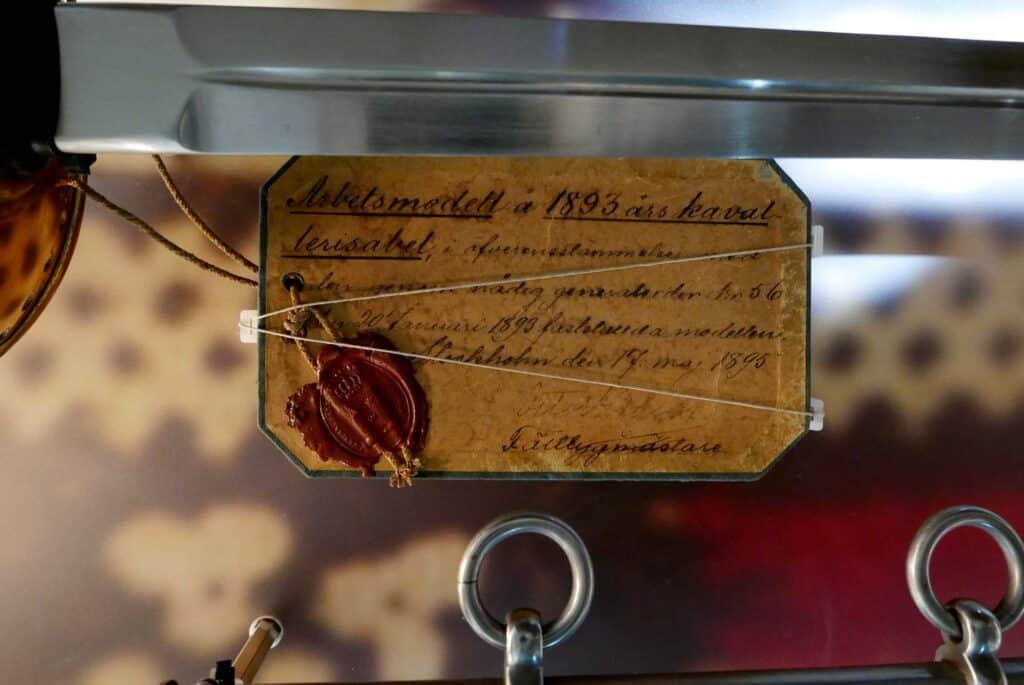 Arbetsmodell à 1893 års kaval-
lerisabel, i öfverensstämmelse med
genom nådig generalorder Nr 56
den 20 Januari 1893 fastställda modellen.
Stockholm den 17. maj 1895
Fälttygmästare